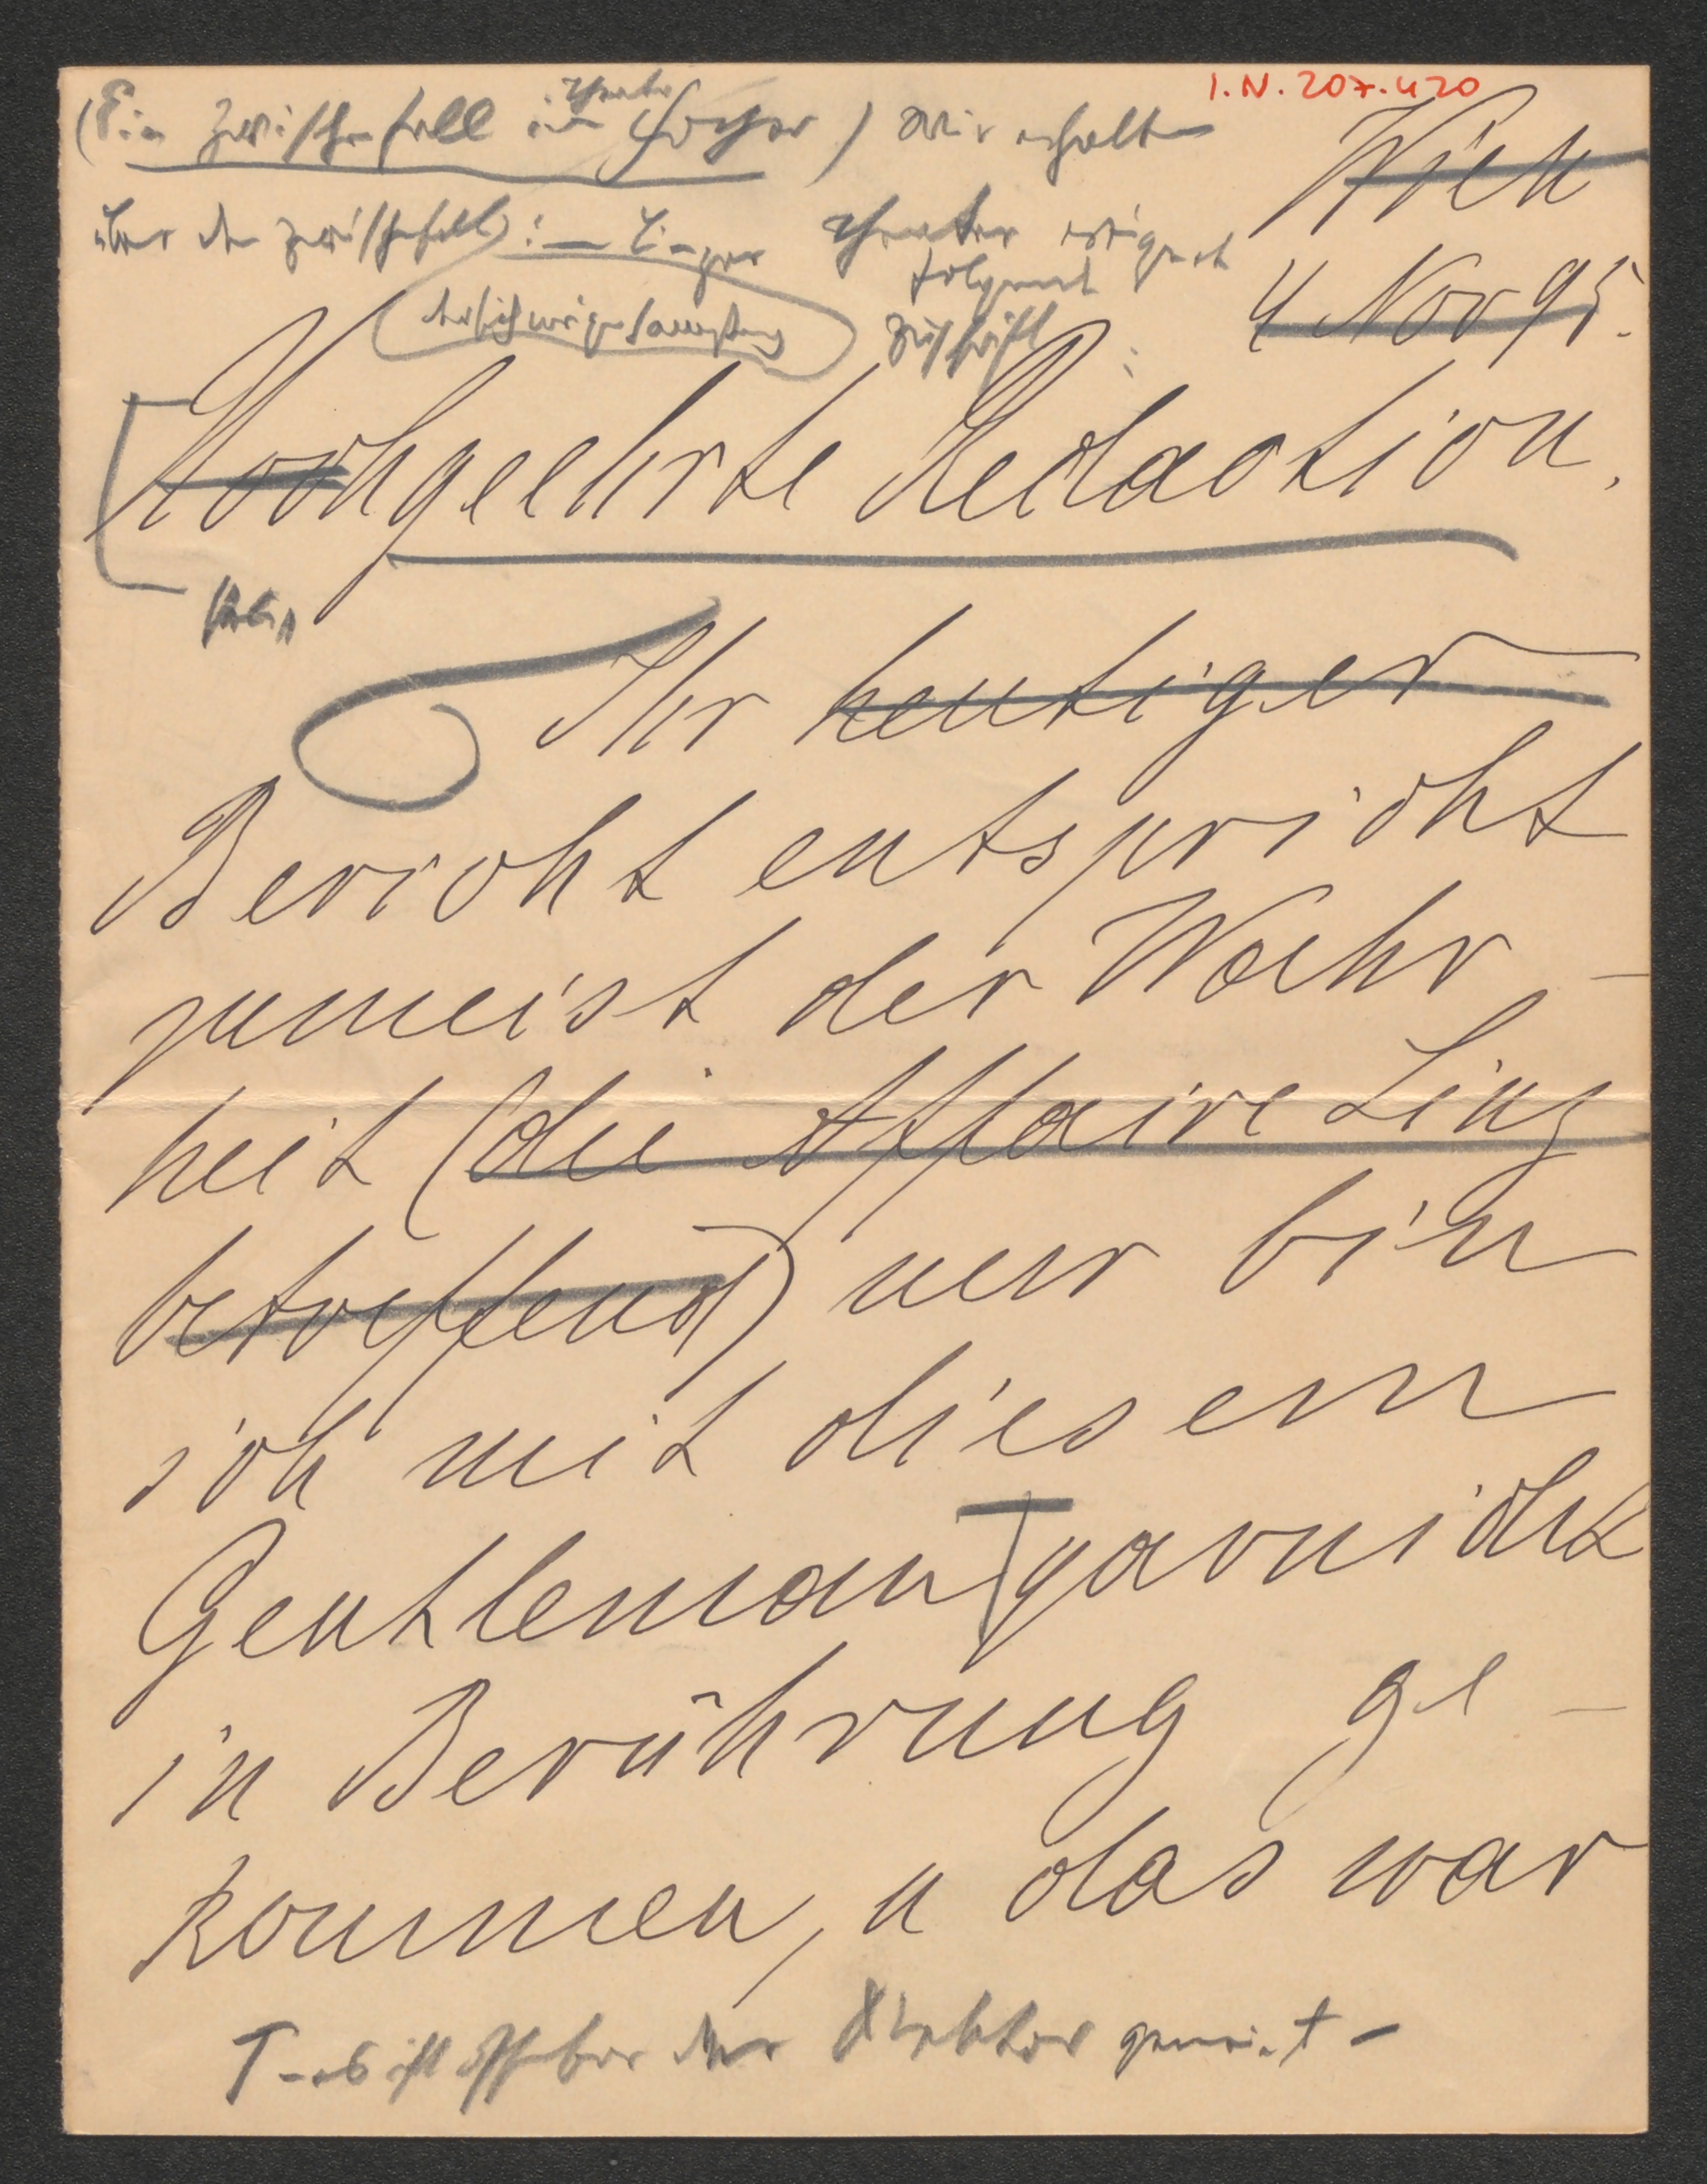 I.N. 207.420
(Ein Zwischenfall im Theater Foyer) Wir erhalten
über den Zwischenfall, im Linzer Theater ereignet
der sich vorgestern folgende
Zuschrift :
Wien
4 Nov 95.
Hochgeehrte Redaction.
Ihr heutiger
Bericht entspricht
zumeist der Wahr-
heit (die Affaire Linz
betreffend) nur bin
ich mit diesem
Gentleman T garnicht
in Berührung ge-
kommen, u das war
T - es ist offenbar der Direktor gemeint -